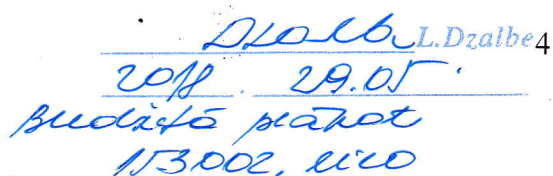 Dzalbe L.Dzalbe 4
2018. 29.05.
Budžetā plānot
153002, eiro